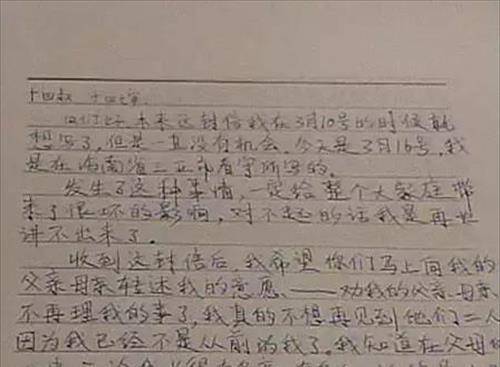 十四叔 十四婶:
你们好 本来这封信我在3月10号的时候就
想写了,但是一直没有机会,今天是3月16号,我
是在海南省三亚市看守所写的。
发生了这种事情,一定给整个大家庭带
来了很坏的影响,对不起的话我是再也
讲不出来了。
收到这封信后,我希望你们马上向我的
父亲母亲转述我的意愿、——劝我的父亲母亲
不再理我的事了,我真的不想再见到他们二人
因为我已经不是从前的我了。我知道在父母的